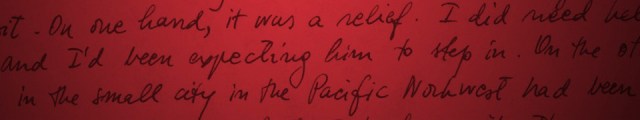 it. On one hand, it was a relief. I did need hel
and I'd been expecting him to step in. On the ot
in the small city in the Pacific Northwest had been